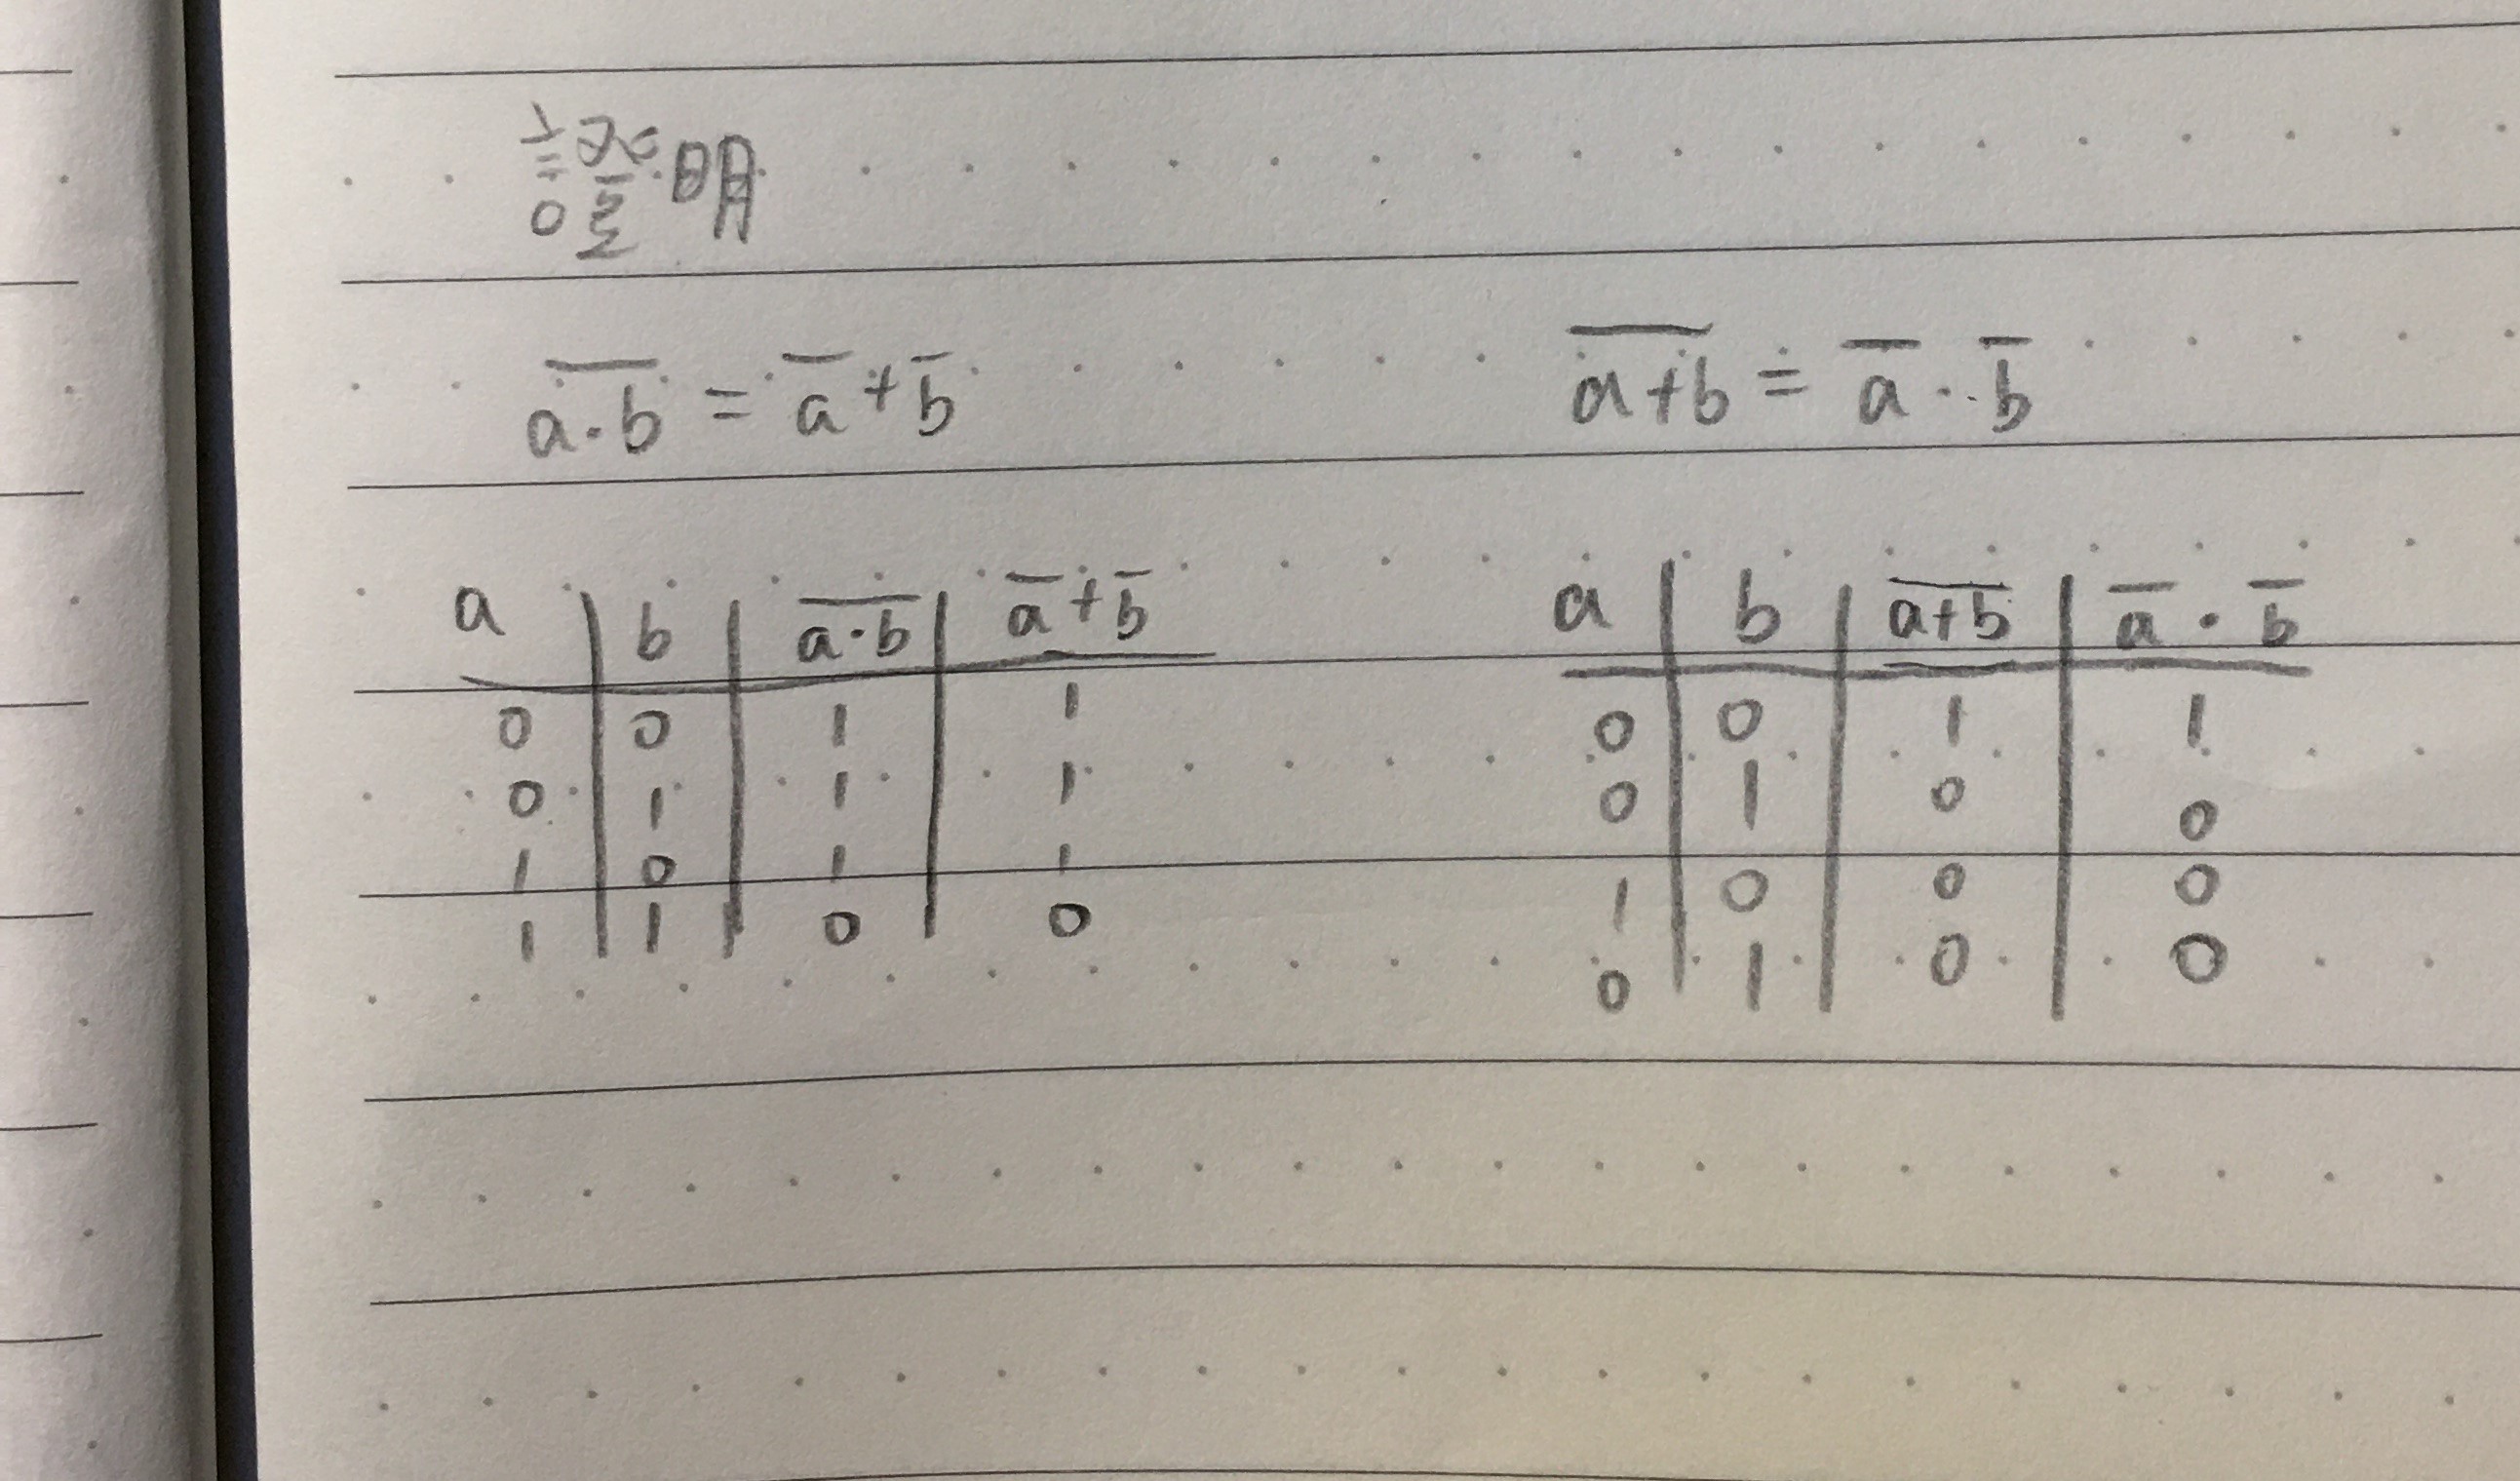 證明
a̅·̅b̅ = a̅ + b̅
a̅+̅b̅ = a̅ · b̅
a b a̅·̅b̅ a̅+b̅
0 0 1 1
0 1 1 1
1 0 1 1
1 1 0 0
a b a̅+̅b̅ a̅ · b̅
0 0 1 1
0 1 0 0
1 0 0 0
0 1 0 0